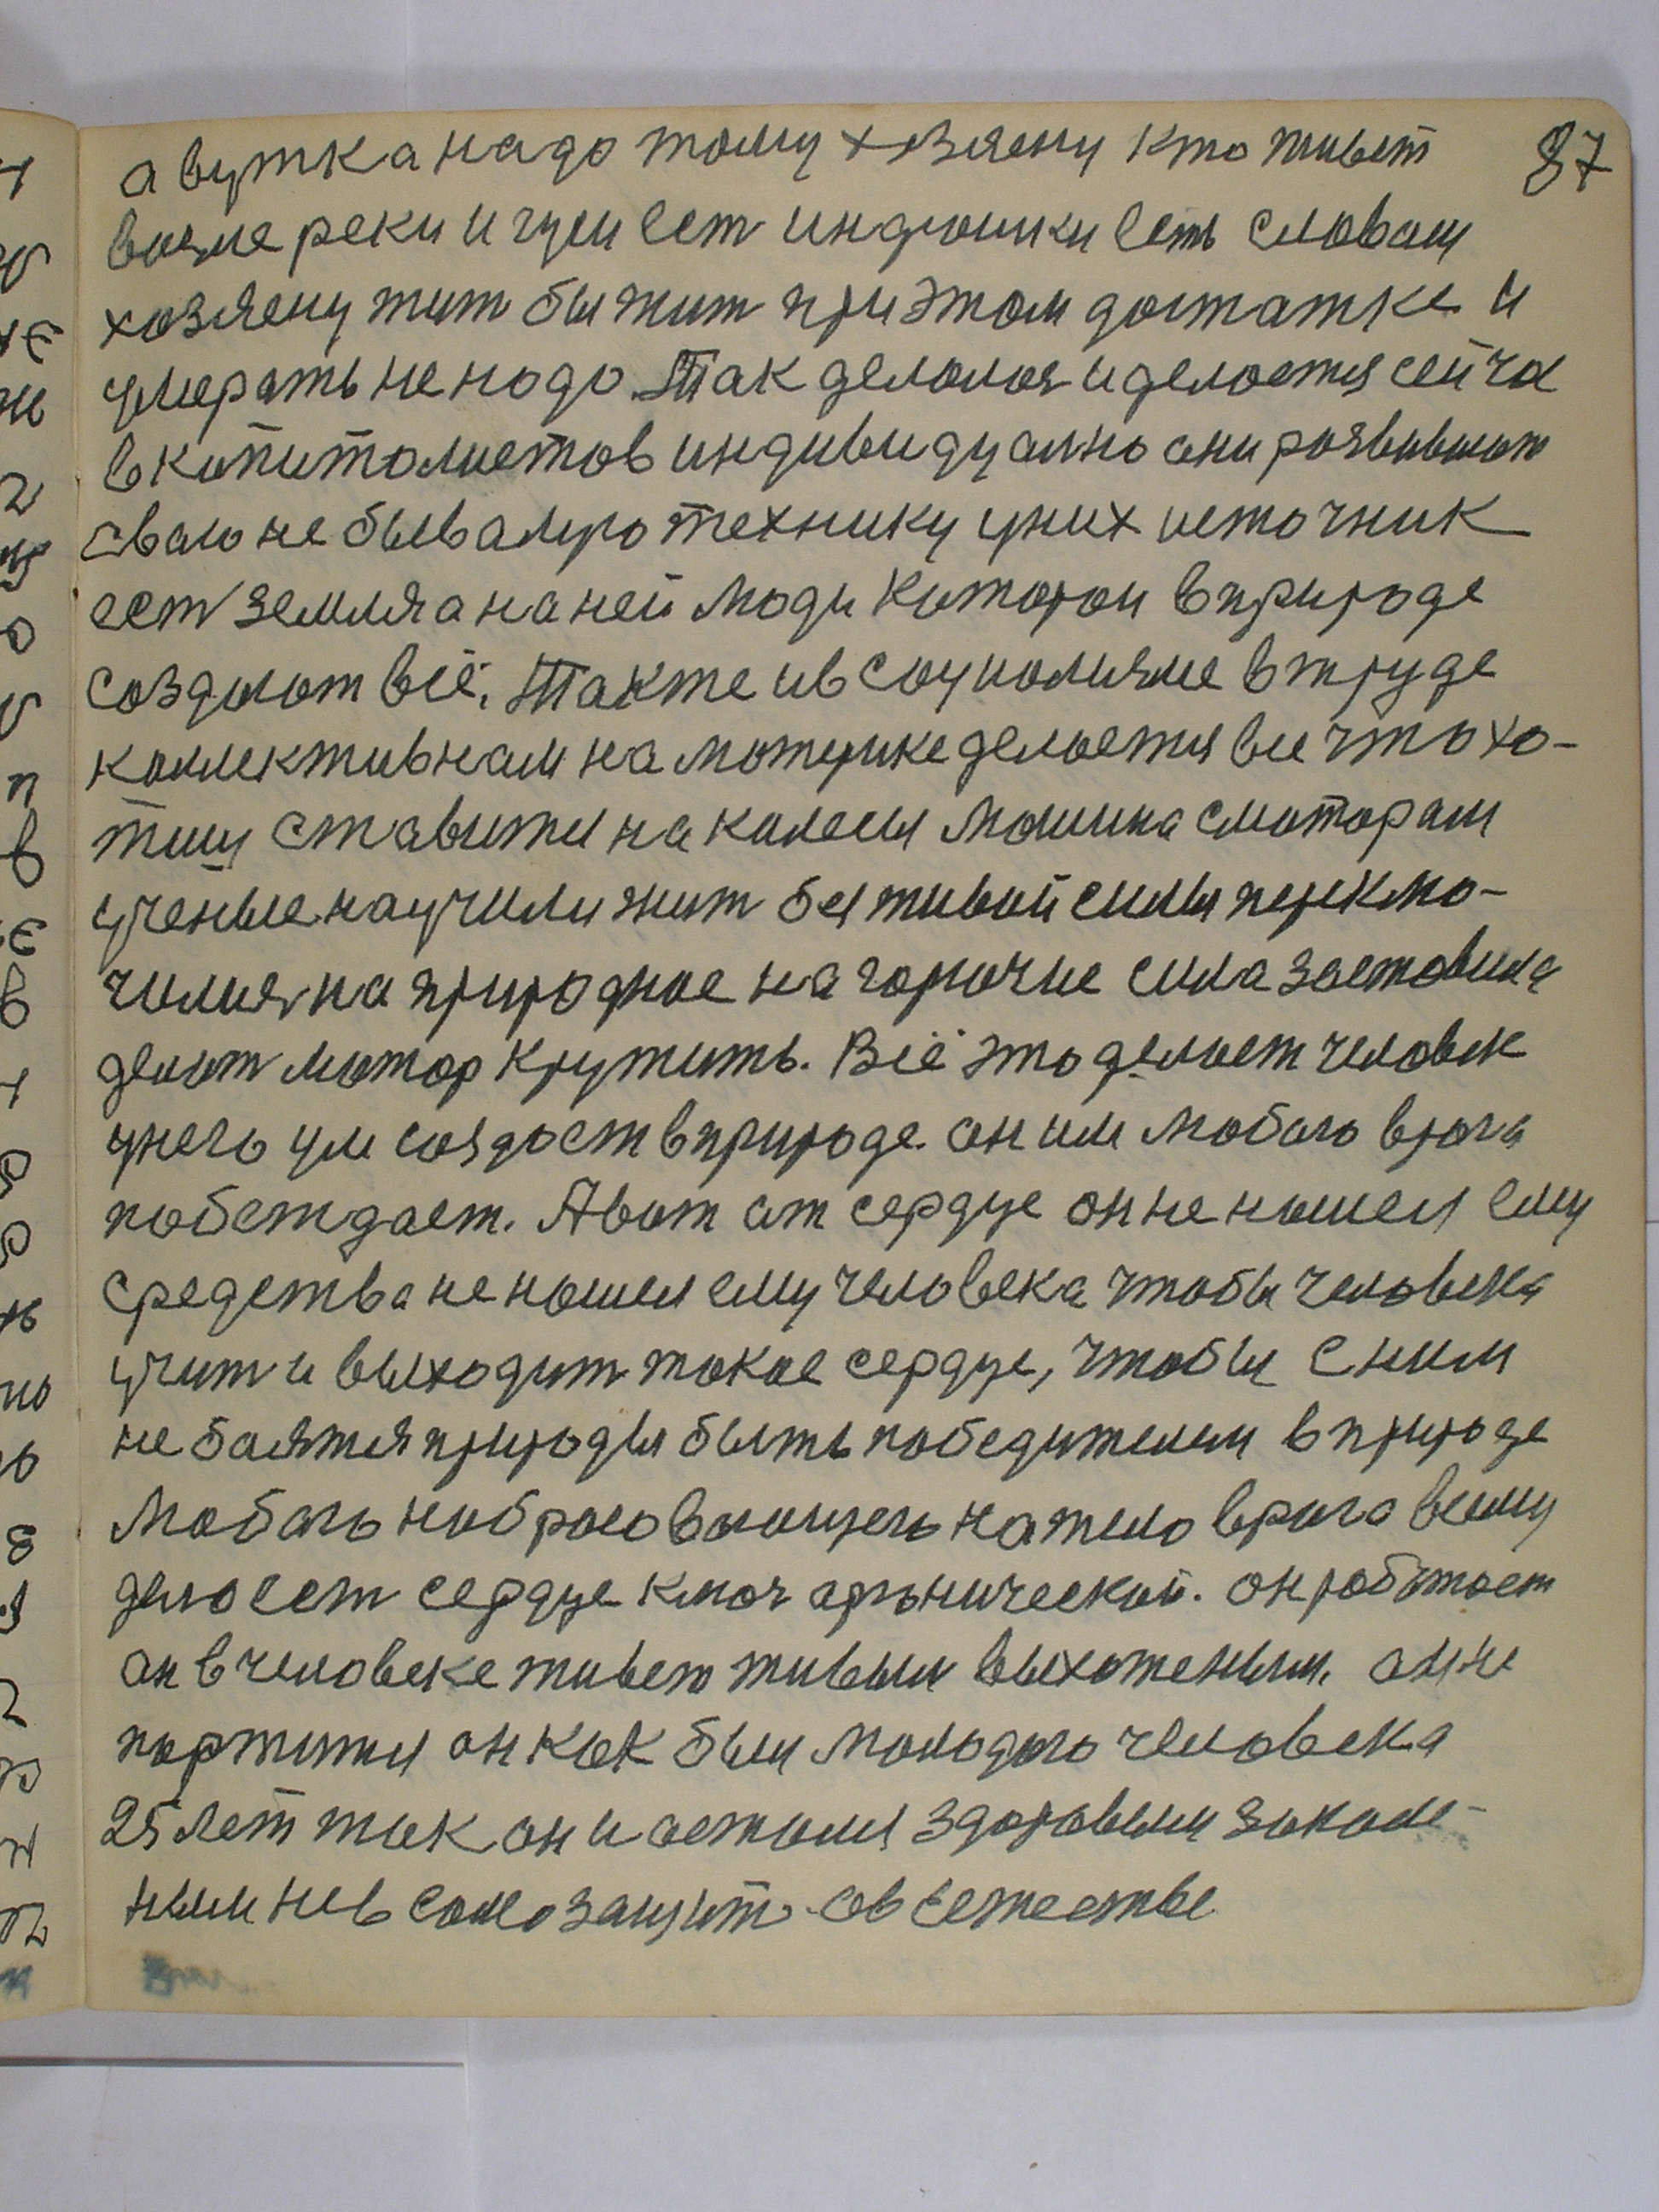 а вутка надо тому хозяену кто живет 87
возле реки и гуси ест индюшки есть словам
хозяену жит бы жит при этом достатке и
умерать не надо. Так делолоя и делоется сейчас
в копитолистов индивидуално они розвивают
сваю не бывалую технику у них источник
ест земля а на ней люди которои в природе
создают всё. Так же и в социолизме в труде
коллективнам на мотерике делоется все что хо-
тиш ставится на колеса машина с мотором
учёные научили жит без живой силы переклю-
чился на природное на горючие сила заставила
делат мотор крутить. Всё это делает человек
у него ум создост в природе. он им любого врога
побеждает. А вот от сердце он не нашел ему
средства не нашел ему человека чтобы человека
учит и выходит такое сердце, чтобы с ним
не баятся природы быть победителем в природе
любого набросовающего на тело врага всему
дело ест сердце ключ аргонический. он роботает
он в человеке живет живым выхоженым. он не
портится он как был молодого человека
25 лет так он и остался здоровым закале-
ным не в само защит. об естестве